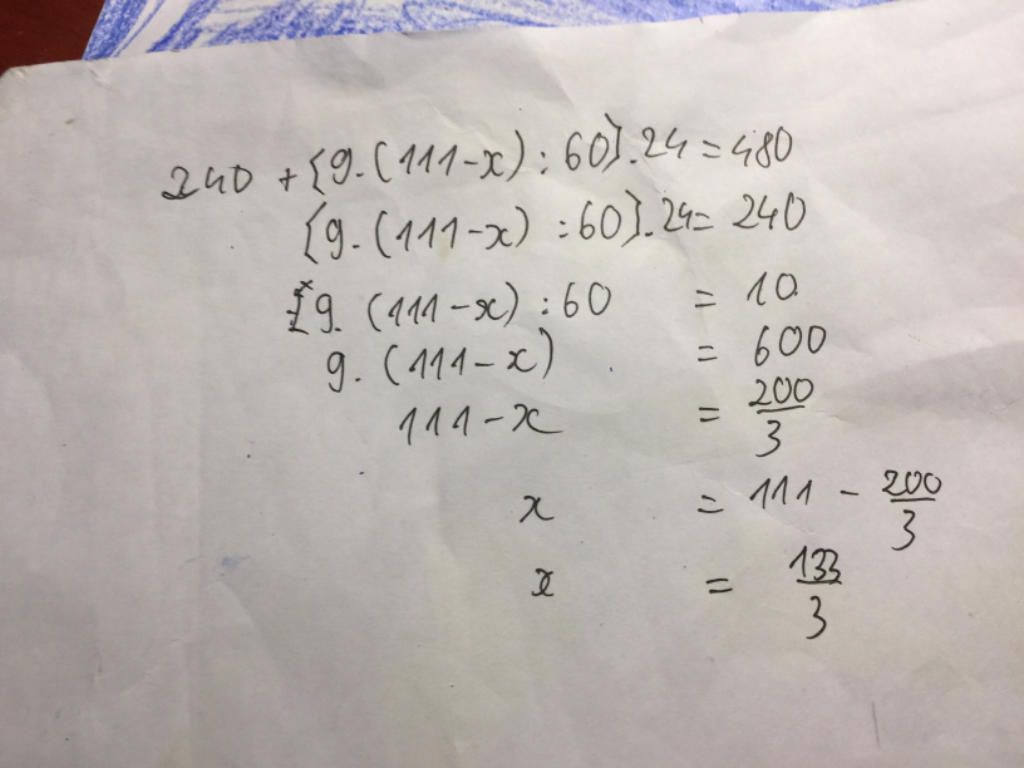 240 + {9.(111-x) : 60}.24 = 480
{9.(111-x) : 60}.24 = 240
[9.(111-x) : 60 = 10
9.(111-x) = 600
111-x = 200/3
x = 111 - 200/3
x = 133/3